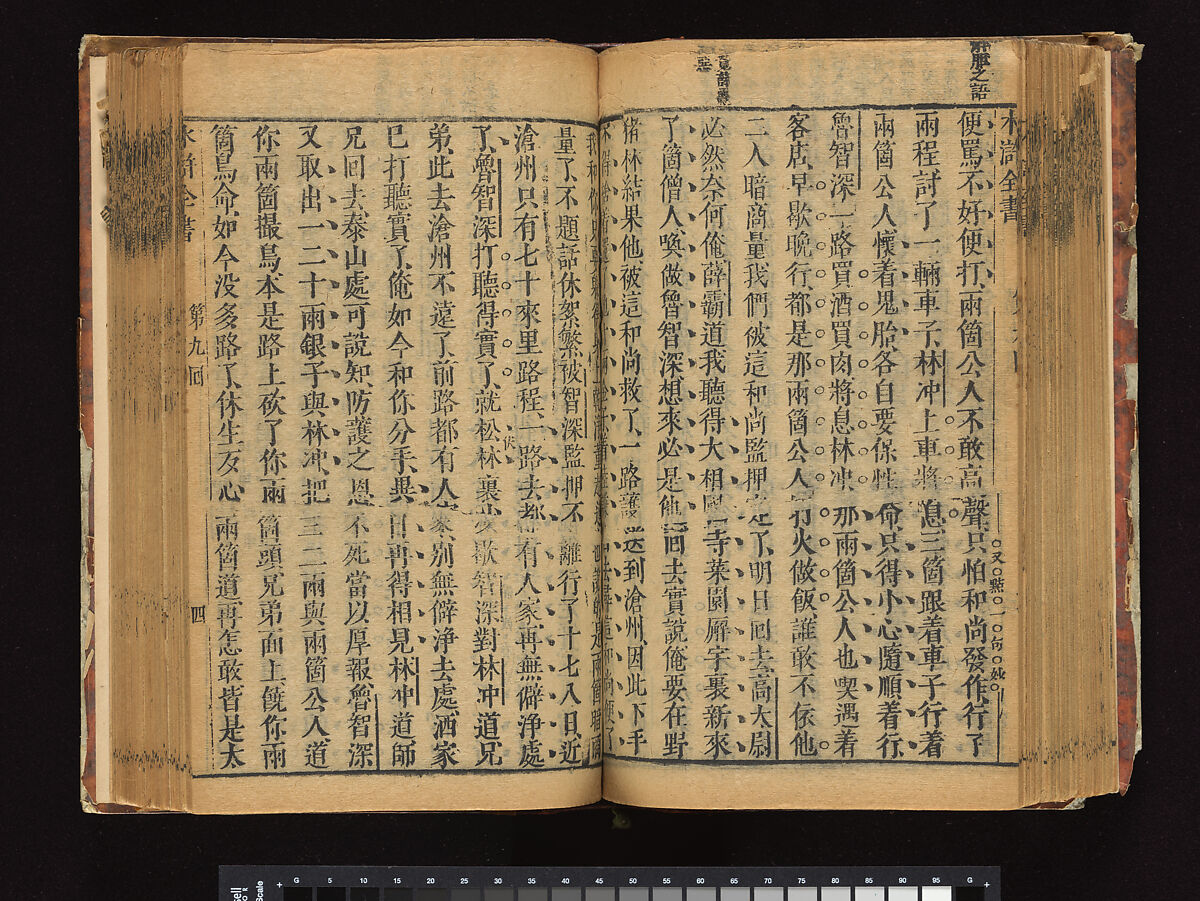 肝胆之語
水滸全書
便罵不好便打兩箇公人不敢高聲只怕和尚發作行了
又點一句妙
兩程討了一輛車子林冲上車將息三箇跟着車子行着
兩箇公人懷着鬼胎各自要保性命只得小心隨順着行
魯智深一路買酒買肉將息林冲那兩箇公人也喫遇着
客店早歇晚行都是那兩箇公人打火做飯誰敢不依他
二人暗商量我們被這和尚監押定了明日回去高太尉
必然奈何俺薛霸道我聽得大相國寺菜園廨宇裏新來
了箇僧人喚做魯智深想來必是他回去實說俺要在野
猪林結果他被這和尚救了一路護送到滄州因此下手
量了不題話休絮繁被智深監押不離行了十七八日近
滄州只有七十來里路程一路去都有人家再無僻淨處
了魯智深打聽得實了就松林裏少歇智深對林冲道兄
弟此去滄州不遠了前路都有人家別無僻淨去處洒家
已打聽實了俺如今和你分手異日再得相見林冲道師
兄回去泰山處可說知防護之恩不死當以厚報魯智深
又取出一二十兩銀子與林冲把三二兩與兩箇公人道
你兩箇撮鳥本是路上砍了你兩箇頭兄弟面上饒你兩
箇鳥命如今没多路了休生歹心兩箇道再怎敢皆是太
水滸全書 第九回 四